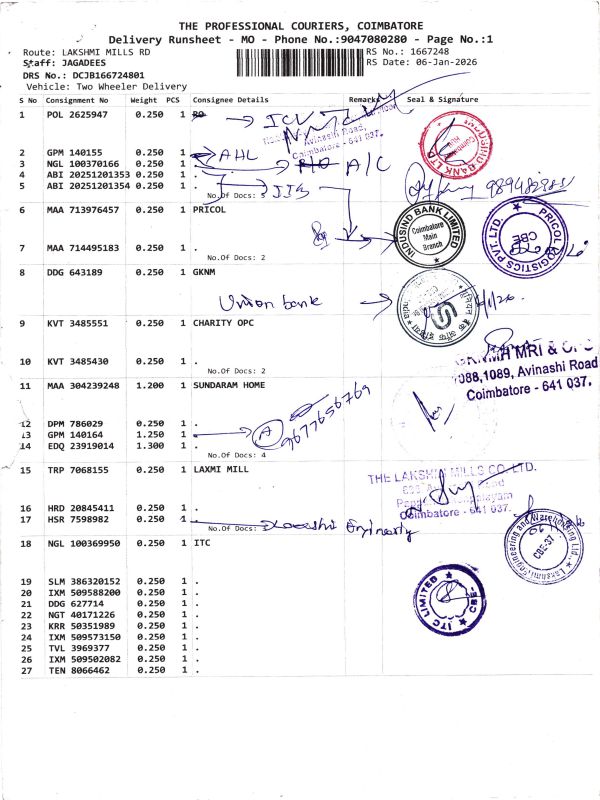 THE PROFESSIONAL COURIERS, COIMBATORE
Delivery Runsheet - MO - Phone No.:9047080280 - Page No.:1
Route: LAKSHMI MILLS RD
RS No.: 1667248
Staff: JAGADEES
RS Date: 06-Jan-2026
DRS No.: DCJB166724801
Vehicle: Two Wheeler Delivery
S No Consignment No Weight PCS Consignee Details Remarks Seal & Signature
1 POL 2625947 0.250 1
Avinashi Road,
Coimbatore - 641 037.
2 GPM 140155 0.250 1 AHL
3 NGL 100370166 0.250 1 A/C
4 ABI 20251201353 0.250 1 .
5 ABI 20251201354 0.250 1 .
No.Of Docs: 5
9894829851
INDUSIND BANK LTD
6 MAA 713976457 0.250 1 PRICOL
INDUSIND BANK LIMITED
Coimbatore
Main
Branch
PRICOL LOGISTICS PVT. LTD.
CBE
7 MAA 714495183 0.250 1 .
No.Of Docs: 2
8 DDG 643189 0.250 1 GKNM
Union bank
9 KVT 3485551 0.250 1 CHARITY OPC
10 KVT 3485430 0.250 1 .
No.Of Docs: 2
MRI &
1088,1089, Avinashi Road
Coimbatore - 641 037.
11 MAA 304239248 1.200 1 SUNDARAM HOME
9677656769
12 DPM 786029 0.250 1 .
13 GPM 140164 1.250 1 A
14 EDQ 23919014 1.300 1 .
No.Of Docs: 4
15 TRP 7068155 0.250 1 LAXMI MILL
THE LAKSHMI MILLS CO. LTD.
Coimbatore - 641 037.
16 HRD 20845411 0.250 1 .
17 HSR 7598982 0.250 1
No.Of Docs: 3
Engineering and Warehousing Ltd.
CBE-37
18 NGL 100369950 0.250 1 ITC
ITC LIMITED
CBE
19 SLM 386320152 0.250 1 .
20 IXM 509588200 0.250 1 .
21 DDG 627714 0.250 1 .
22 NGT 40171226 0.250 1 .
23 KRR 50351989 0.250 1 .
24 IXM 509573150 0.250 1 .
25 TVL 3969377 0.250 1 .
26 IXM 509502082 0.250 1 .
27 TEN 8066462 0.250 1 .